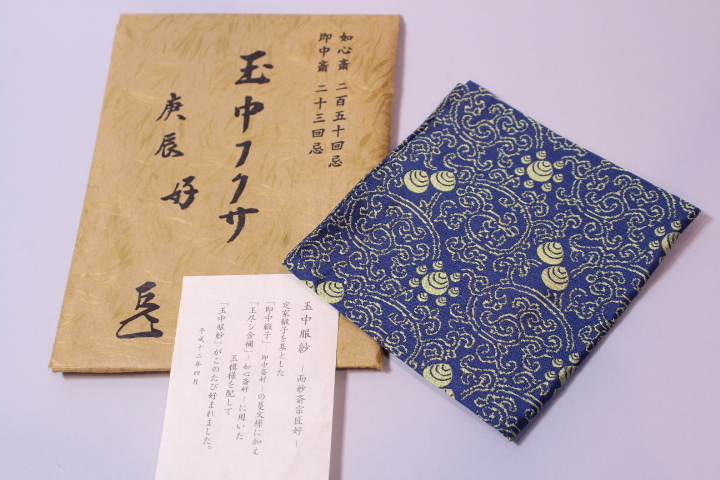 如心斎 二百五十回忌
即中斎 二十三回忌
玉中フクサ
庚辰 好
玉中服紗 ―而妙斎宗匠好―
定家緞子を基とした
「即中緞子」―即中斎好―の蔓文様に加え
「玉尽シ金襴」―如心斎好―に用いた
玉模様を配して
「玉中服紗」がこのたび好まれました。
平成十二年四月